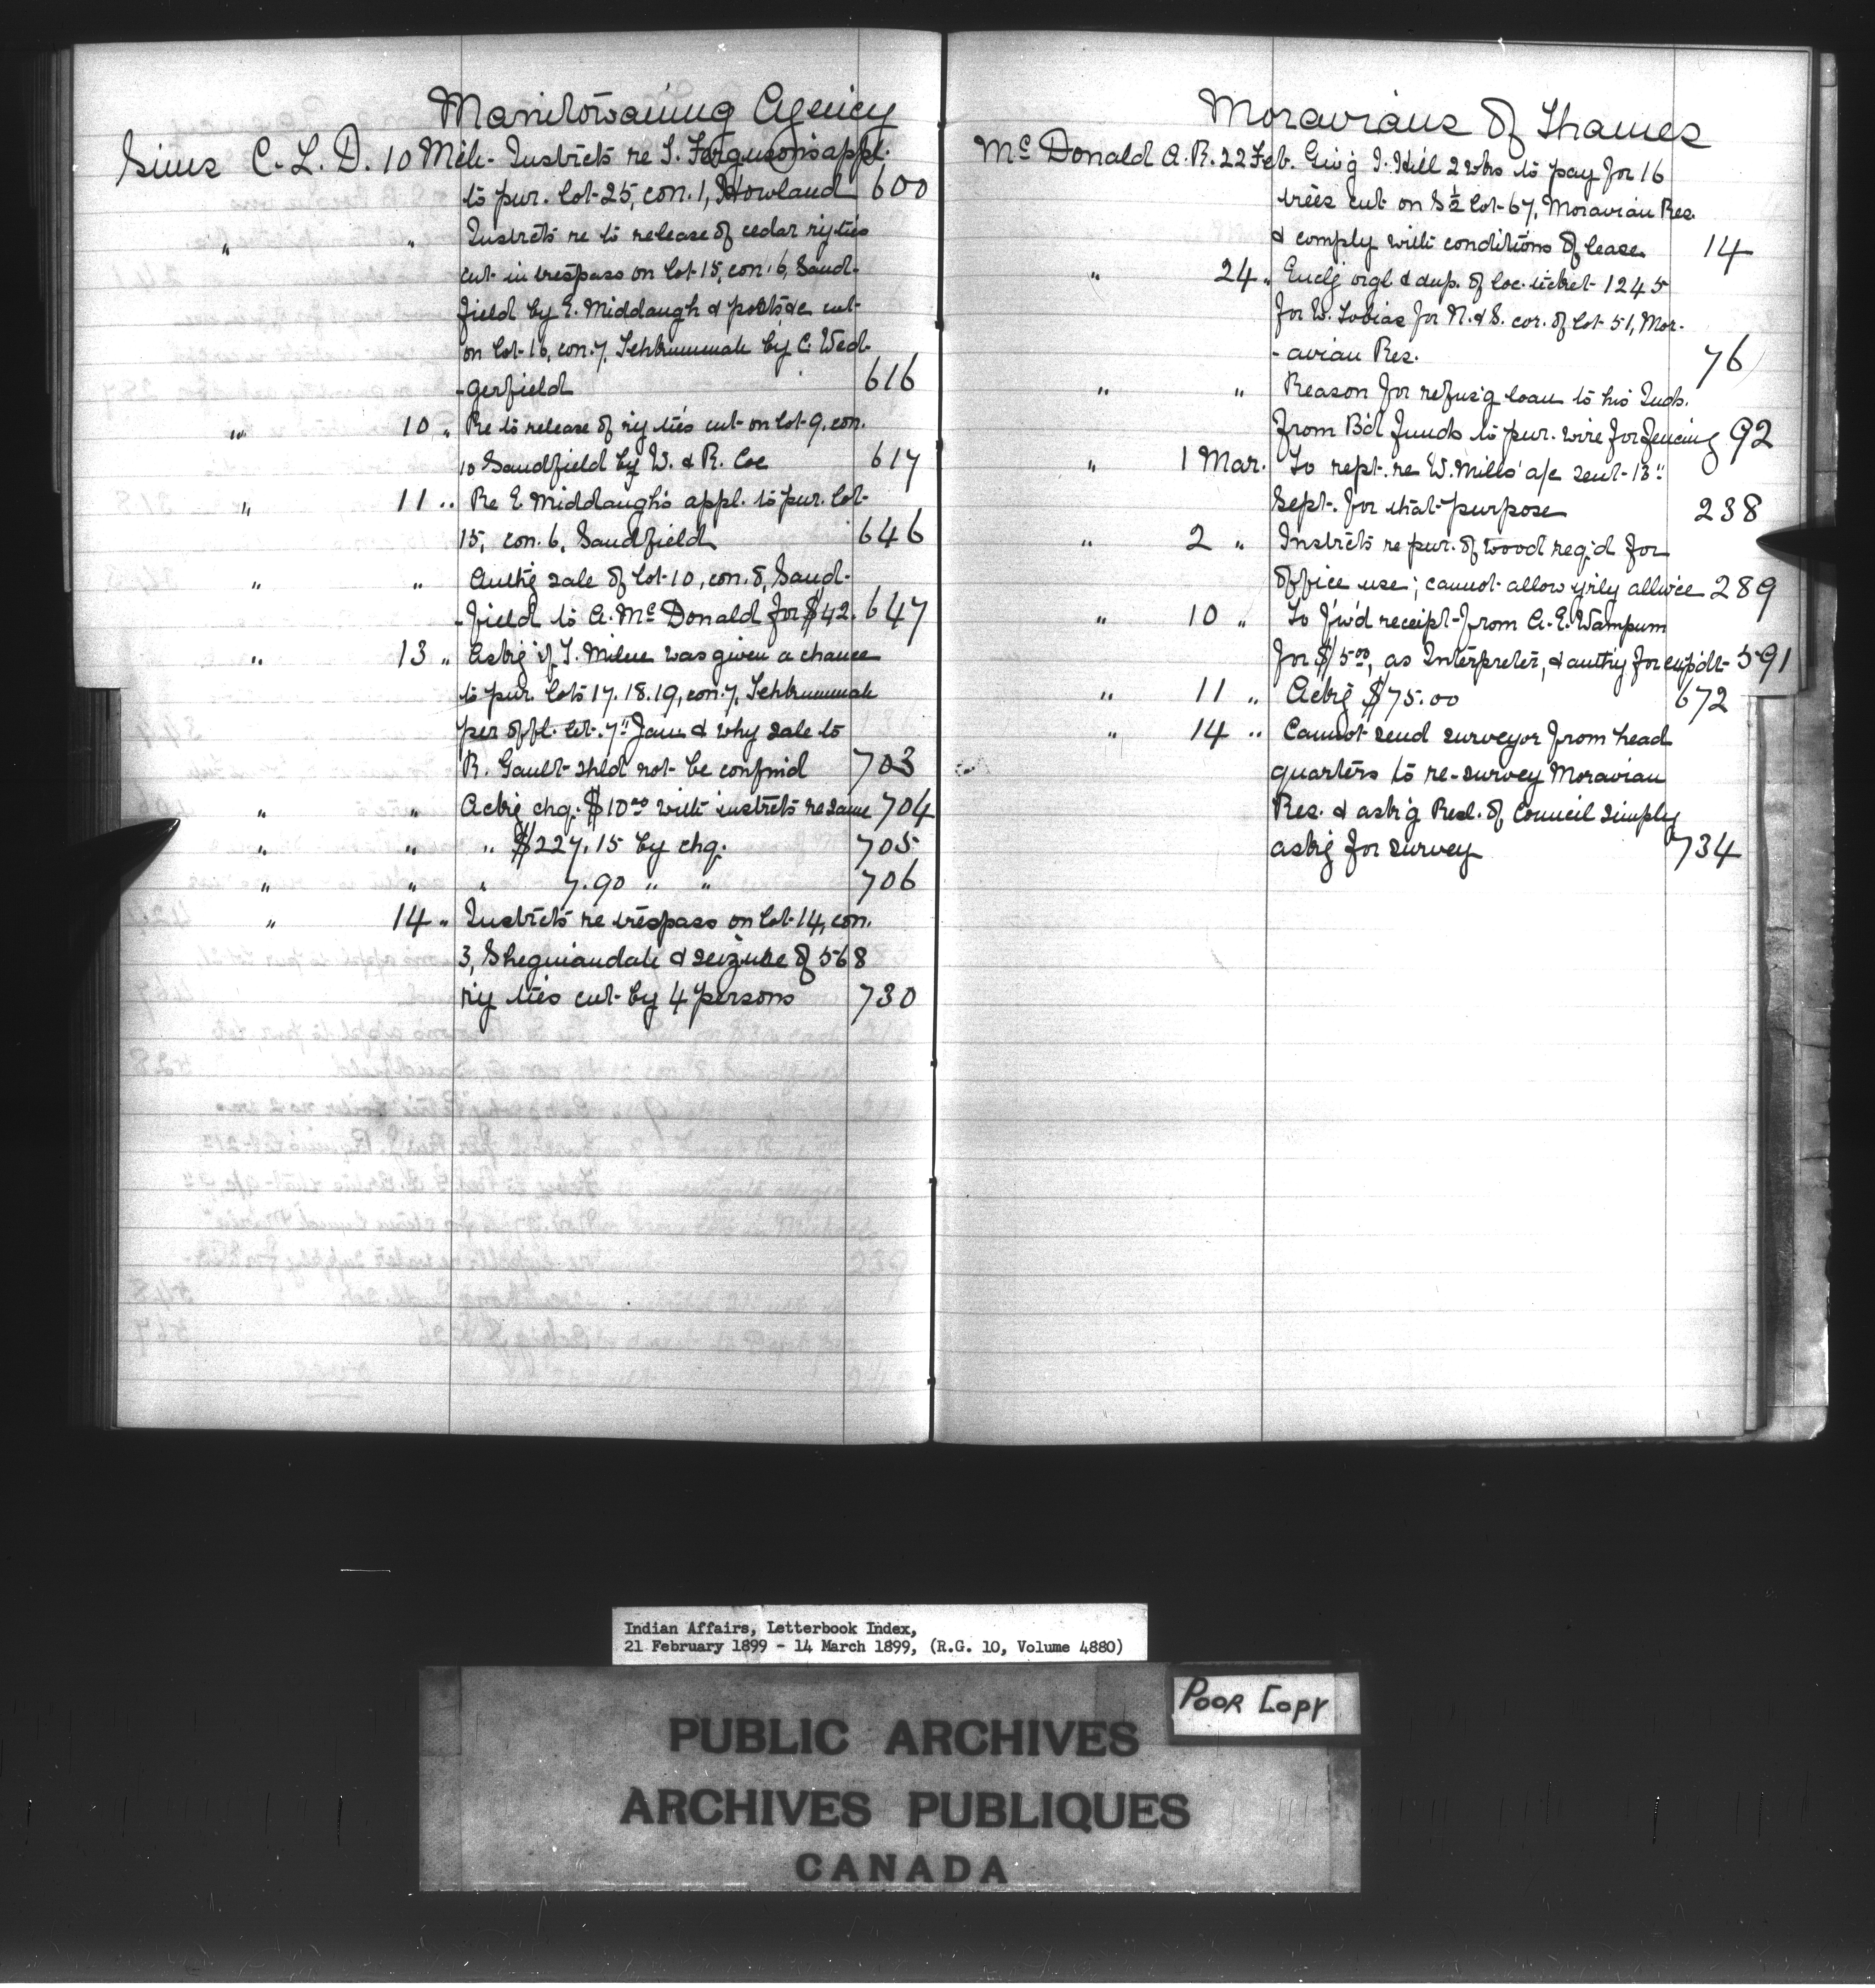 Manitowaning Agency
Sims C. L. D. 10 Mch. Instrcts re T. Ferguson's appl.
to pur. lot 25, con. 1, Howland 600
" " Instrcts re to release of cedar ry ties
cut in trespass on lot 15, con. 6, Sand-
field by E. Middaugh & posts &c cut
on lot 16, con. 7, Tehkummah by C. Wed-
-gerfield 616
" 10 " Re to release of ry ties cut on lot 9, con.
10 Sandfield by W. & R. Coe 617
" 11 " Re E. Middaugh's appl. to pur. lot
15, con. 6, Sandfield 646
" " Authg sale of lot 10, con. 8, Sand-
-field to A. McDonald for $42. 647
" 13 " Askg if T. Milne was given a chance
to pur. lots 17. 18. 19, con. 7, Tehkummah
per offl. let. 7" Jany & why sale to
R. Gault shld not be confmd 703
" " Ackg chq. $10.00 with instrcts re same 704
" " " $227.15 by chq. 705
" " " 7.90 " " 706
" 14 " Instrcts re trespass on lot 14, con.
3, Sheguiandah & seizure of 568
ry ties cut by 4 persons 730
Moravians of Thames
McDonald A. R. 22 Feb. Giv'g I. Hill 2 wks to pay for 16
trees cut on S½ lot 67, Moravian Res.
& comply with conditions of lease 14
" 24 " Enclg orgl & dup. of loc. ticket 1245
for W. Tobias for N. & S. cor. of lot 51, Mor-
-avian Res. 76
" " Reason for refus'g loan to his Inds.
from B'd funds to pur. wire for fencing 92
" 1 Mar. To rept. re W. Mills' a/c sent 13"
Sept. for that purpose 238
" 2 " Instrcts re pur. of wood req'd for
office use; cannot allow yrly allwce 289
" 10 " To f'w'd receipt from A. E. Wampum
for $5.00, as Interpreter, & authy for expdt 591
" 11 " Ackg $75.00 672
" 14 " Cannot send surveyor from head
quarters to re-survey Moravian
Res. & ask'g Resl. of Council simply
askg for survey 734
Indian Affairs, Letterbook Index,
21 February 1899 - 14 March 1899, (R.G. 10, Volume 4880)
Poor Copy
PUBLIC ARCHIVES
ARCHIVES PUBLIQUES
CANADA